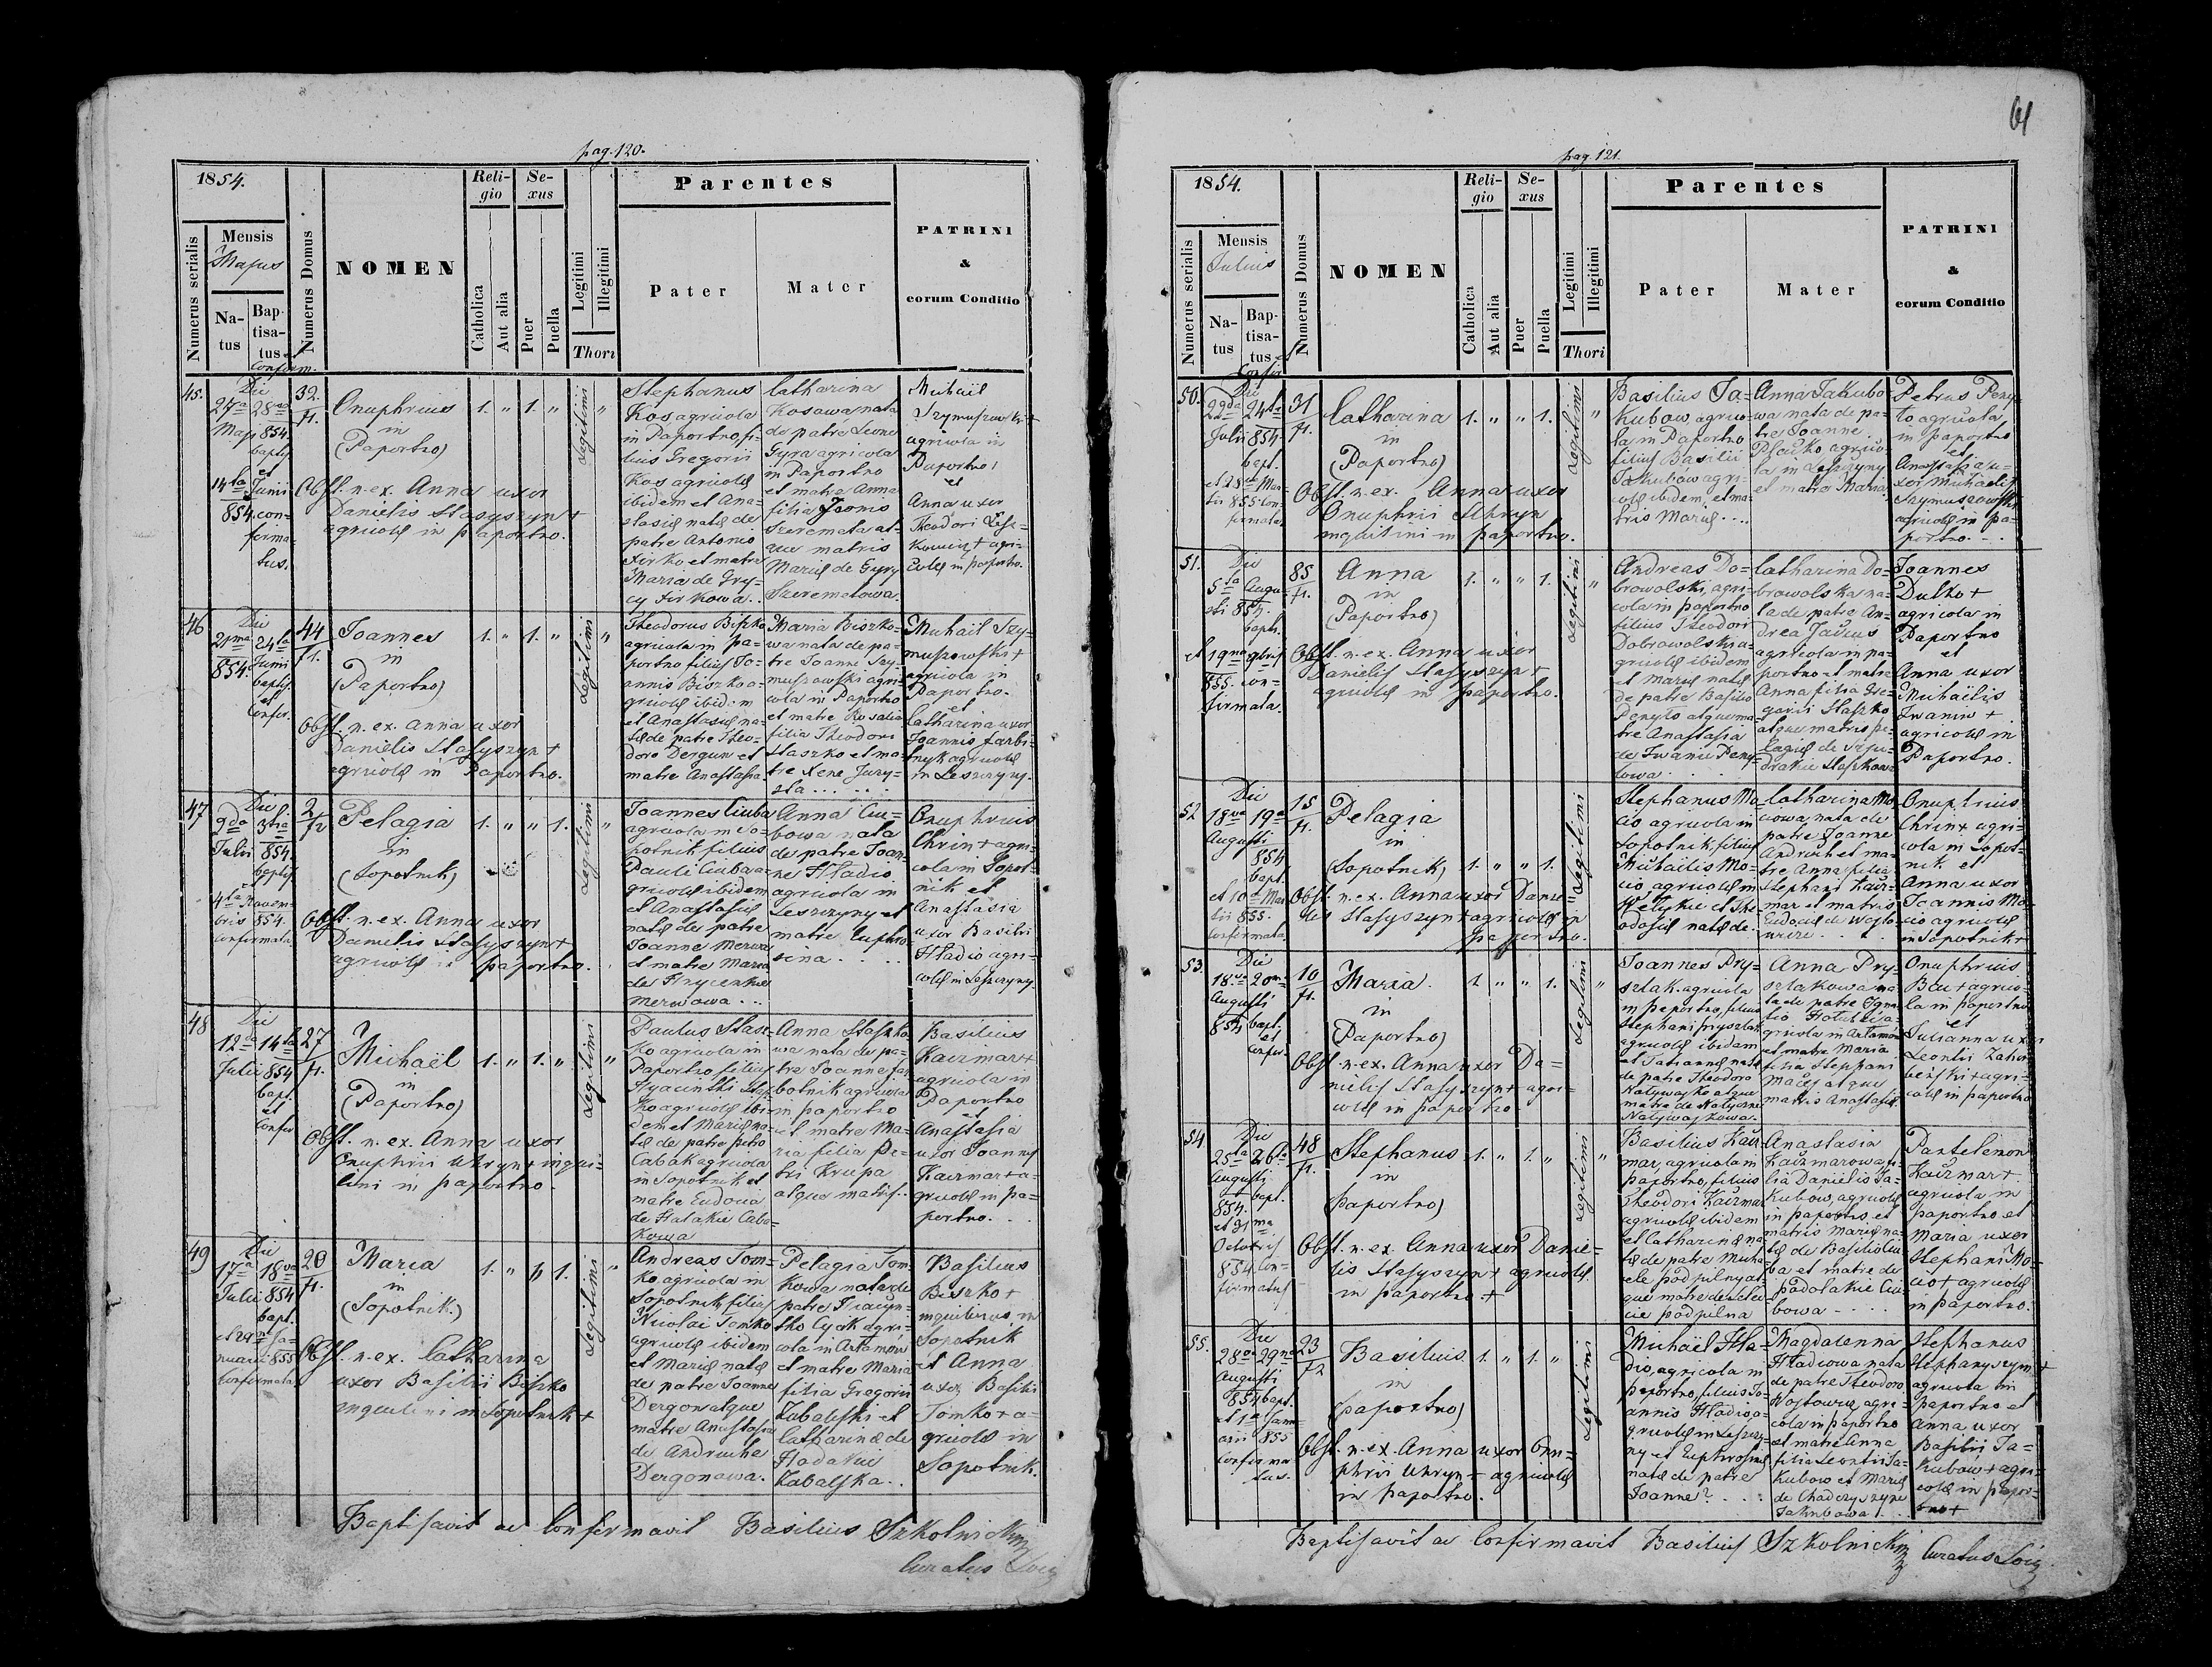 pag. 120.
1854.
Numerus serialis
Mensis
Majus
Natus
Baptisatus
et
Confirm.
Numerus Domus
NOMEN
Religio
Catholica
Aut alia
Sexus
Puer
Puella
Legitimi
Illegitimi
Thori
Parentes
Pater
Mater
PATRINI
&
eorum Conditio
45.
Die
28va
Maji 854.
bapt.
et
14ta Junii
854. con-
firma-
tus.
32.
fl.
Onuphrius
in
(Paportno)
1. " 1. "
Legitimi
"
Obst. n. ex. Anna uxor
Danielis Stasyszyn +
agricolæ in Paportno.
Stephanus
Kos agricola
in Paportno, fi-
lius Gregorii
Kos agricolæ
ibidem et Ana-
stasiæ natæ de
patre Antonio
Firko et matre
Maria de Gry-
cy Firkowa..
Catharina
Kosowa nata
de patre Leone
Gyra agricola
in Paportno
et matre Anna
filia Joannis
Szeremeta at-
que matris
Mariæ de Gyry
Szeremetowa.
Michaël
Szymuszowski +
agricola in
Paportno
et
Anna uxor
Theodori
agri-
colæ in paportno.
46
Die
21ma 24ta
Junii
854.
baptis.
et
Confir.
44
fl.
Joannes
in
(Paportno)
1. " 1. "
Legitimi
"
Obst. n. ex. Anna uxor
Danielis Stasyszyn +
agricolæ in Paportno.
Theodorus Biszko
agricola in Pa-
portno filius Jo-
annis Biszko a-
gricolæ ibidem
et Anastasiæ na-
tæ de patre Theo-
doro Dergun et
matre Anastasia
Maria Biszko-
wa nata de pa-
tre Joanne Szy-
muszowski agri-
cola in Paportno
et matre Rosalia
filia Theodori
Staszko et ma-
tre Xene Jury-
sta.....
Michaël Szy-
muszowski +
agricola in
Paportno.
et
Catharina uxor
Joannis Jarbi-
nyk agricolæ
in Leszczyny.
47
Die
2da 3tia
Julii 854.
baptis.
4ta Novem-
bris 854.
confirmata
2
f2
Pelagia
in
(Sopotnik)
1. " " 1.
Legitimi
"
Obst. n. ex. Anna uxor
Danielis Stasyszyn +
agricolæ in paportno.
Joannes Ciuba
agricola in So-
potnik, filius
Pauli Ciuba a-
gricolæ ibidem
et Anastasiæ
natæ de patre
Joanne
et matre Maria
de Hrycenkie
Merwowa...
Anna Ciu-
bowa nata
de patre Joan-
ne Hladio
agricola in
Leszczyny et
matre Euphro-
sina....
Onuphrius
Chrin + agri-
cola in Sopot-
nik et
Anastasia
uxor Basilii
Hladio agri-
colæ in Leszczyny.
48
Die
12da 14ta
Julii 854
bapt.
et
Confir.
27
fl.
Michaël
in
(Paportno)
1. " 1. "
Legitimi
"
Obst. n. ex. Anna uxor
Onuphrii Uhryn + inqui-
lini in paportno.
Paulus Stasz-
ko agricola in
Paportno, filius
Hyacinthi Stasz-
ko agricolæ ibi-
dem et Mariæ na-
tæ de patre Petro
Cabak agricola
in Sopotnik et
matre Eudocia
de Halakie Caba-
kowa
Anna Staszko-
wa nata de pa-
tre Joanne Jar-
botnik agricola
in paportno
et matre Ma-
ria filia Pe-
tri Krupa
atque matris..
Basilius
Kaczmar +
agricola in
Paportno
et
Anastasia
uxor Joannis
Kaczmar + a-
gricolæ in pa-
portno...
49
Die
17ma 18va
Julii 854
bapt.
Ja-
nuarii 855
confirmata
20
fl.
Maria
in
(Sopotnik.)
1. " 1.
Legitimi
"
Obst. n. ex. Catharina
uxor Basilii Biszko
inquilini in Sopotnik +
Andreas Tom-
ko agricola in
Sopotnik filius
Nicolai Tomko
agricolæ ibidem
et Mariæ natæ
de patre Joanne
Dergon atque
matre Anastasia
de Andruche
Dergonowa.
Pelagia Tom-
kowa nata de
patre Hiacyn-
tho Cycak agri-
cola in Artamów
et matre Maria
filia Gregorii
Zabalski et
Catharinæ de
Hadakie
Zabalska..
Basilius
Biszko +
inquilinus in
Sopotnik
et Anna
uxor Basilii
Tomko + a-
gricolæ in
Sopotnik.
Baptisavit ac Confirmavit Basilius Szkolnicki
Curatus Loci
61
pag. 121.
1854.
Numerus serialis
Mensis
Julius
Natus
Baptisatus
et
Confir
Numerus Domus
NOMEN
Religio
Catholica
Aut alia
Sexus
Puer
Puella
Legitimi
Illegitimi
Thori
Parentes
Pater
Mater
PATRINI
&
eorum Conditio
50.
Die
22da 24ta
Julii 854.
bapt.
et 28va Mar-
tii 855 con-
firmata
31
fl.
Catharina
in
(Paportno)
1. " " 1.
Legitimi
"
Obst. n. ex. Anna uxor
Onuphrii Uhryn
inquilini in paportno.
Basilius Ja-
kubow, agrico-
la in Paportno
filius Basilii
Jakubów agri-
colæ ibidem, et ma-
tris Mariæ....
Anna Jakubo-
wa nata de pa-
tre Joanne
agrico-
la in Leszczyny
et matre Maria
Petrus Peny-
to agricola
in paportno
et
Anastasia u-
xor Michaëlis
Szymuszowski
agricolæ in Pa-
portno...
51.
Die
5ta Augu-
sti 854.
bapt.
et 19na 9bris
855. con-
firmata.
85
fl.
Anna
in
(Paportno)
1. " " 1.
Legitimi
"
Obst. n. ex. Anna uxor
Danielis Stasyszyn +
agricolæ in paportno.
Andreas Do-
browolski, agri-
cola in paportno
filius Theodori
Dobrowolski a-
gricolæ ibidem
et Mariæ natæ
de patre Basilio
Penyto atque ma-
tre Anastasia
de Iwanie Peny-
towa
Catharina Do-
browolska na-
ta de patre An-
drea
agricola in pa-
portno et matre
Anna filia Gre-
gorii Staszko
atque matris Pe-
lagiæ de
Staszkowa
Joannes
Dulko +
agricola in
Paportno
et
Anna uxor
Michaëlis
Iwaniw +
agricolæ in
Paportno.
52
Die
18va 19na
Augusti
854
bapt.
et 10a Mar-
tii 855.
confirmata
15
fl.
Pelagia
in
(Sopotnik)
1. " " 1.
Legitimi
"
Obst. n. ex. Anna uxor Danie-
lis Stasyszyn + agricolæ in
paportno.
Stephanus Mo-
cio agricola in
Sopotnik, filius
Michaëlis Mo-
cio agricolæ in
et The-
odosiæ natæ de.
Catharina Mo-
ciowa nata de
patre Joanne
Andruch et ma-
tre Anna filia
Stephani Kacz-
mar et matris
Eudociæ de Wojto-
wicze...
Onuphrius
Chrin + agri-
cola in Sopot-
nik et
Anna uxor
Joannis Mo-
cio agricolæ
in Sopotnik +
53.
Die
18va 20ma
Augusti
854 bapt.
et
Confir.
10
fl.
Maria.
in
(Paportno)
1. " " 1.
Legitimi
"
Obst. n. ex. Anna uxor Da-
nielis Stasyszyn + agri-
colæ in paportno.
Joannes Pry-
szlak. agricola
in paportno, filius
Stephani Pryszlak
agricolæ ibidem
et Tatiannæ natæ
de patre Theodoro
Natywajko atque
matre de
Natywajkowa.
Anna Pry-
szlakowa na-
ta de patre Igna-
tio a-
gricola in Artamów
et matre Maria
filia Stephani
Maciej atque
matris Anastasiæ.
Onuphrius
Bac + agrico-
la in paportno
et
Julianna uxor
Leontii
agri-
colæ in paportno
54
Die
25ta 26ta
Augusti
bapt.
854.
et 31ma
Octobris
854 con-
firmatus
48
fl.
Stephanus
in
(paportno)
1. " 1. "
Legitimi
"
Obst. n. ex. Anna uxor Danie-
lis Stasyszyn + agricolæ
in paportno +
Basilius Kacz-
mar, agricola in
paportno, filius
Theodori Kaczmar
agricolæ ibidem
et Catharinæ na-
tæ de patre Micha-
ele podpilny at-
que matre de
podpilna
Anastasia
Kaczmarowa, fi-
lia Danielis Ja-
kubow, agricolæ
in paportno et
matris Mariæ na-
tæ de Basilio Ciu-
ba et matre de
podolakie Ciu-
bowa....
Pantelemon
Kaczmar +
agricola in
paportno et
Maria uxor
Stephani Mo-
cio + agricolæ
in paportno.
55.
Die
28va 29na
Augusti
854 bapt.
et 1a Janu-
arii 855
Confirma-
tus.
23
f2
Basilius
in
(paportno)
1. " 1. "
Legitimi
Obst. n. ex. Anna uxor Onu-
phrii Uhryn + agricolæ
in paportno.
Michaël Hla-
dio, agricola in
paportno, filius Jo-
annis Hladio, a-
gricolæ in Leszczy-
ny et Euphrosinæ
natæ de patre
Joanne?...
Magdalenna
Hladiowa nata
de patre Theodoro
Wojtowicz, agri-
cola in paportno
et matre Anna
filia Leontii Ja-
kubow et Mariæ
de
Jakubowa!..
Stephanus
Stephanyszyn +
agricola in
paportno et
Anna uxor
Basilii Ja-
kubów + agri-
colæ in papor-
tno +
Baptisavit ac Confirmavit Basilius Szkolnicki Curatus Loci